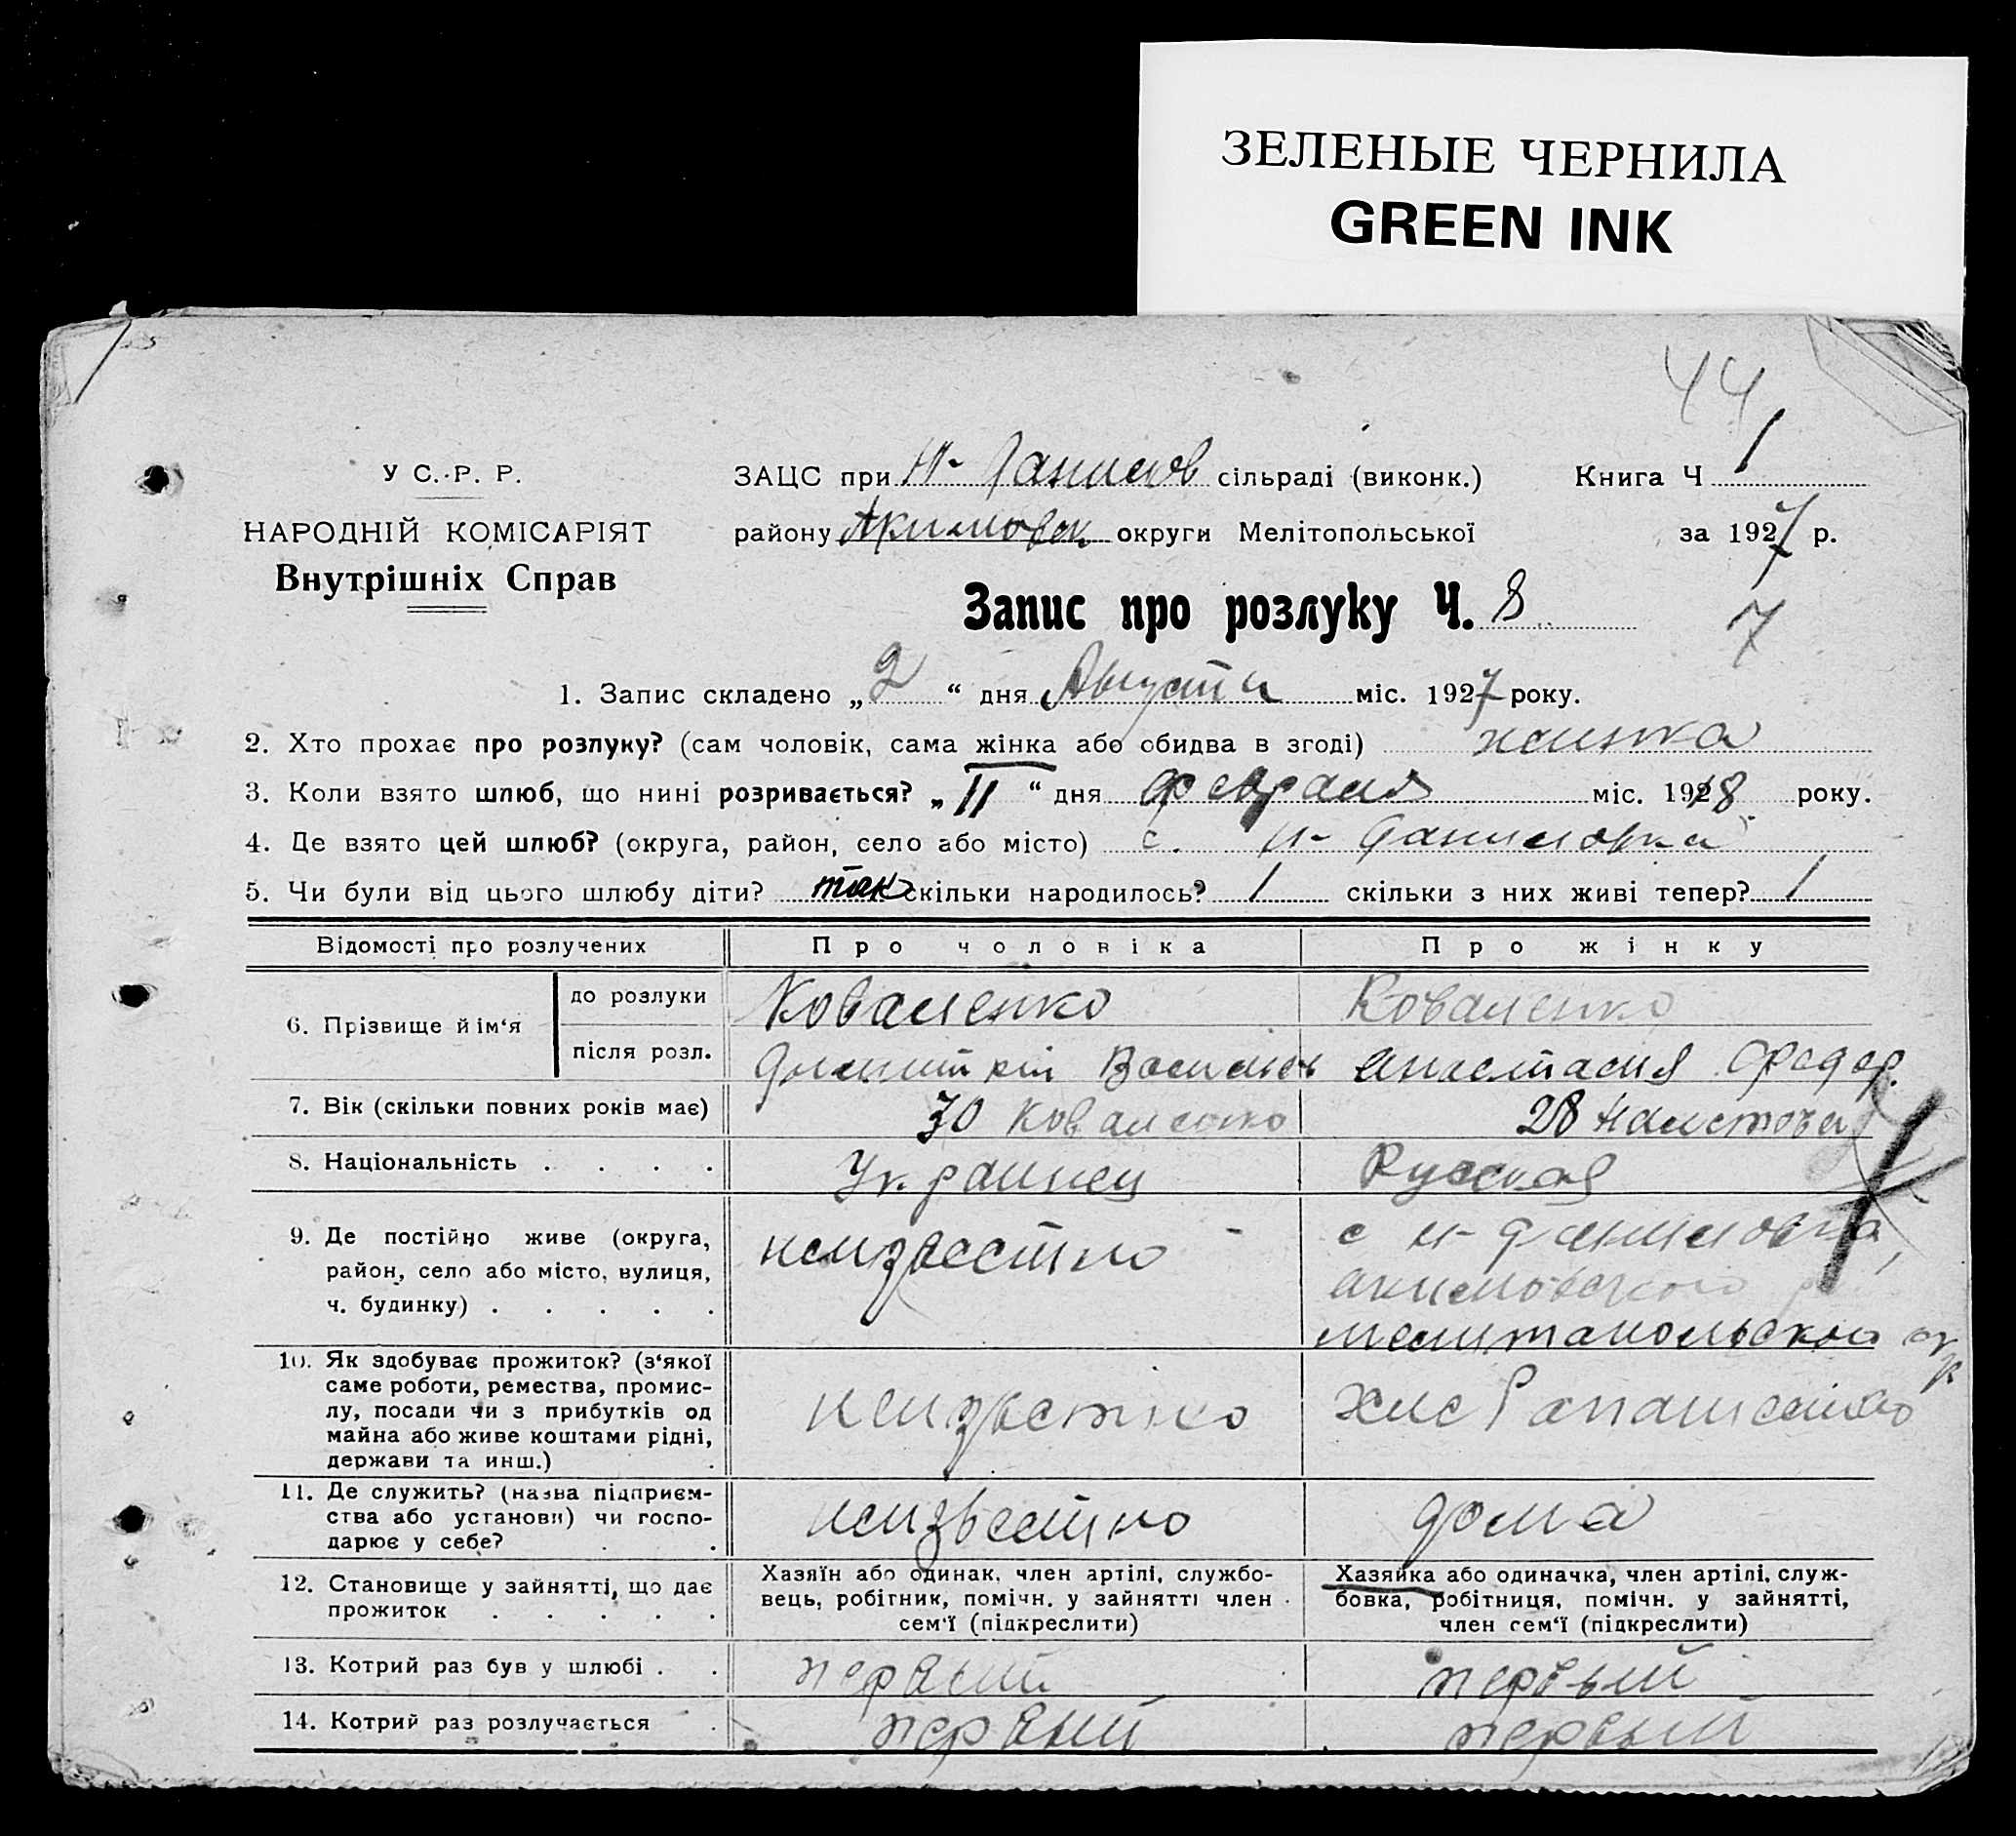 ЗЕЛЕНЫЕ ЧЕРНИЛА
GREEN INK
44
У С.-Р. Р.
НАРОДНІЙ КОМІСАРІЯТ
Внутрішніх Справ
ЗАЦС при Н-Данилов сільраді (виконк.)
району Акимовск округи Мелітопольської
Книга Ч 1
за 1927 р.
Запис про розлуку Ч. 8
7
1. Запис складено „2“ дня Августа міс. 1927 року.
2. Хто прохає про розлуку? (сам чоловік, сама жінка або обидва в згоді) жинка
3. Коли взято шлюб, що нині розривається? „11“ дня февраля міс. 1918 року.
4. Де взято цей шлюб? (округа, район, село або місто) с. Н-Даниловка
5. Чи були від цього шлюбу діти? так скільки народилось? 1 скільки з них живі тепер? 1
Відомості про розлучених Про чоловіка Про жінку
6. Прізвище й ім‘я до розлуки Коваленко Коваленко
після розл. Дмитрій Васильев Анастасия Федор.
7. Вік (скільки повних років має) 30 Коваленко 28
8. Національність . . . . Украинец Русская
9. Де постійно живе (округа, район, село або місто, вулиця, ч. будинку) . . . . . неизвестно с Н-Даниловка,
акимовского р
мелитапольской окр
10. Як здобуває прожиток? (з‘якої саме роботи, ремества, промислу, посади чи з прибутків од майна або живе коштами рідні, держави та инш.) неизвестно
11. Де служить? (назва підприємства або установи) чи господарює у себе? неизвестно дома
12. Становище у зайнятті, що дає прожиток . . . . . Хазяїн або одинак, член артілі, службовець, робітник, помічн. у зайнятті член сем‘ї (підкреслити) Хазяйка або одиначка, член артілі, службовка, робітниця, помічн. у зайнятті, член сем‘ї (підкреслити)
13. Котрий раз був у шлюбі . . первый первый
14. Котрий раз розлучається . первый первый